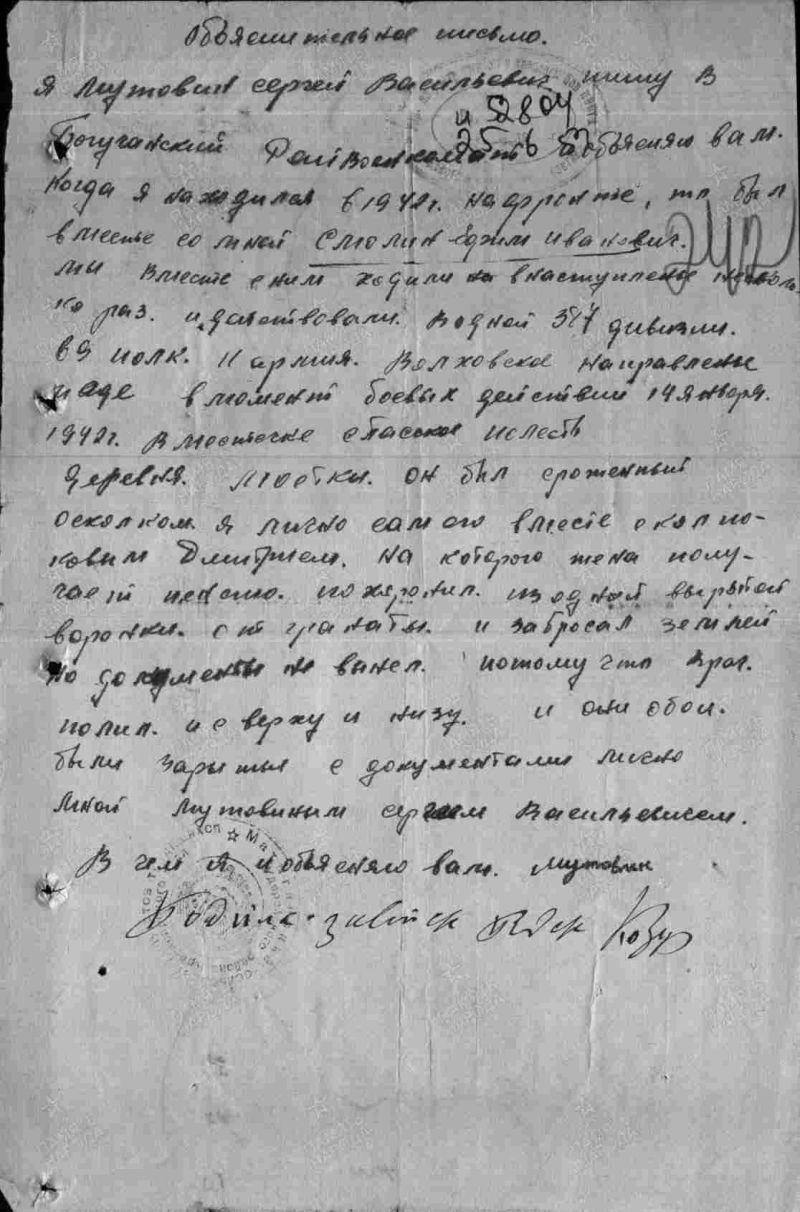 Объяснительное письмо.
Я Мутовин Сергей Васильевич пишу в
и 5804
Богучанский Райвоенкомат объясняю вам.
25 6
Когда я находился в 1942 г. на фронте, то был
вместе со мной Смолин Ефим Иванович.
ми вместе с ним ходили на в наступление несколь-
ко раз. и действовали. в одной 377 дивизии.
в 9 полк. армия. Волховское направление
и где в момент боевых действий 14 января.
1942 г. в местечке спасское полесть
деревня. Мостки. он был сроженный
осколком. я лично сам его вместе с колпо-
ковым Дмитрием. на которого жена полу-
чает пенсию. похоронил. из одной вырытой
воронки. от гранаты. и забросал землей
но документы не вынел. потому что враг.
полил. и с верху и низу. и они обои.
были зарытые с документами лично
мной Мутовиным сергеем Васильевичем.
В чем я и объясняю вам. Мутовин